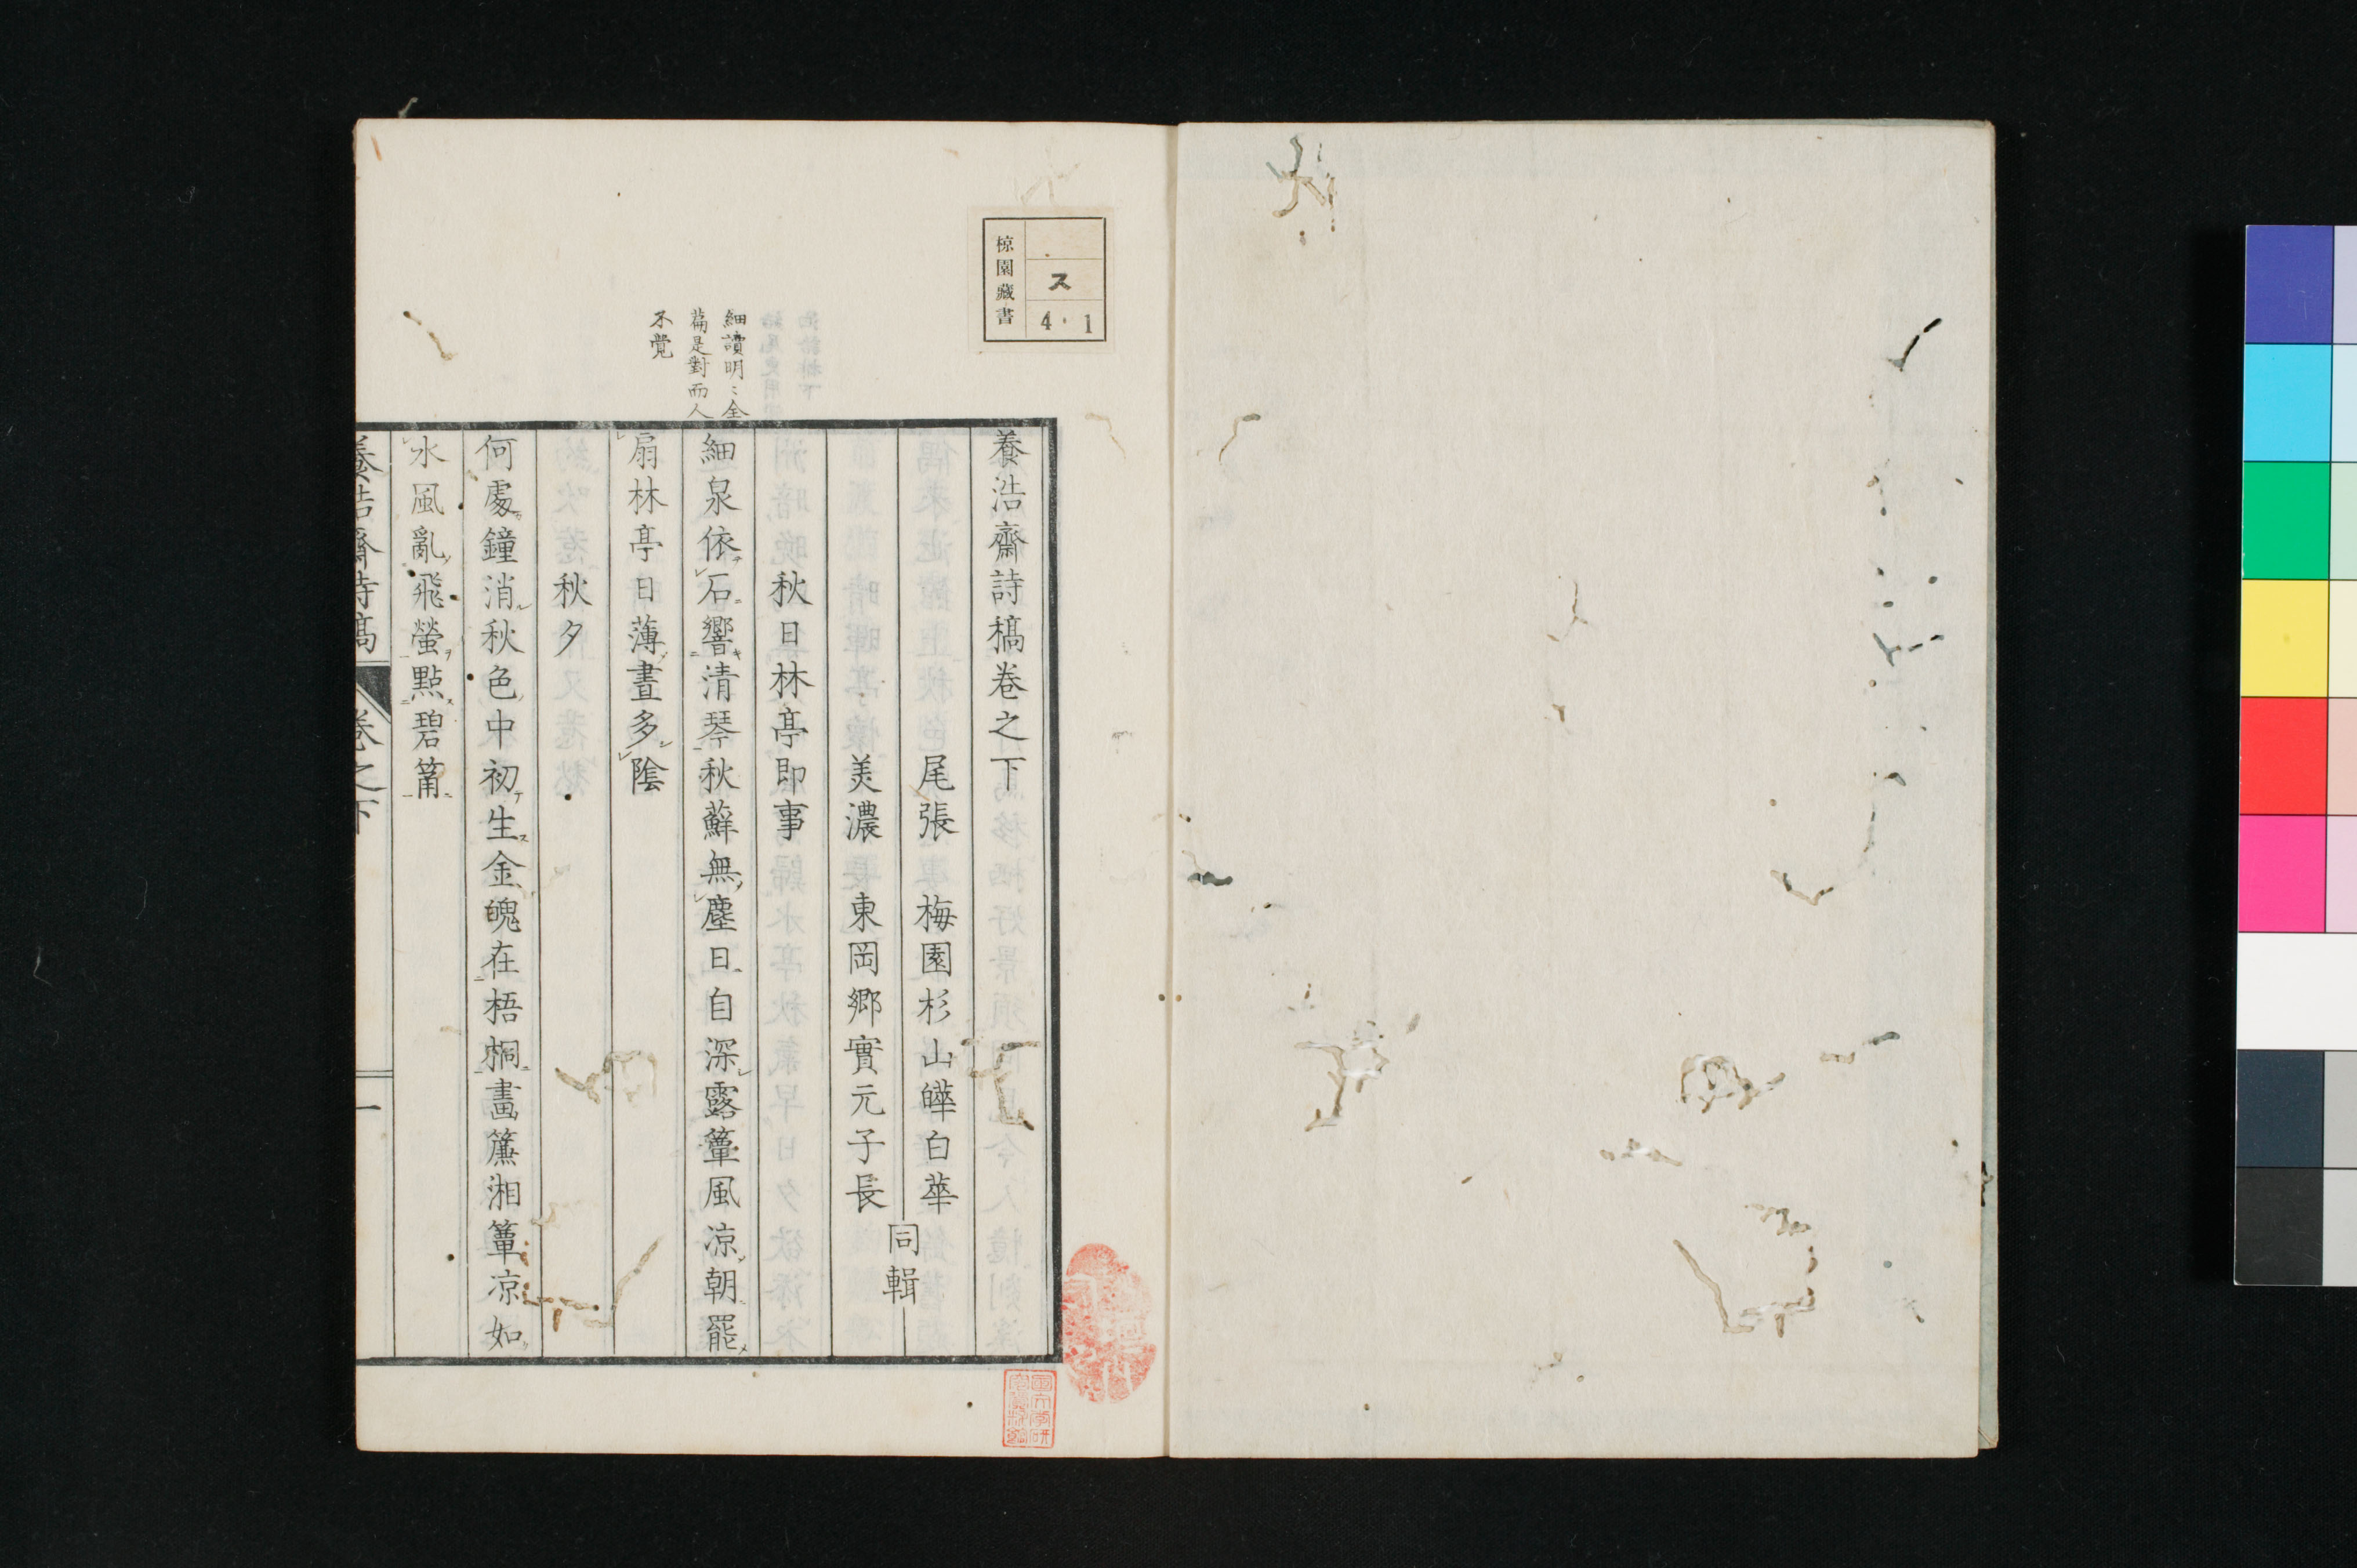 椋園藏書
ス
4・1
養浩齋詩稿卷之下
尾張 梅園杉山皣白華
美濃 東岡郷實元子長
同輯
秋日林亭即事
細讀明〻全
篇是對而人
不覺
細泉依石響清琴秋蘚無塵日自深露簟風凉朝罷
扇林亭日薄晝多陰
秋夕
何處鐘消秋色中初生金魄在梧桐畫簾湘簟凉如
水風亂飛螢點碧筩
養浩齋詩稿 卷之下 一